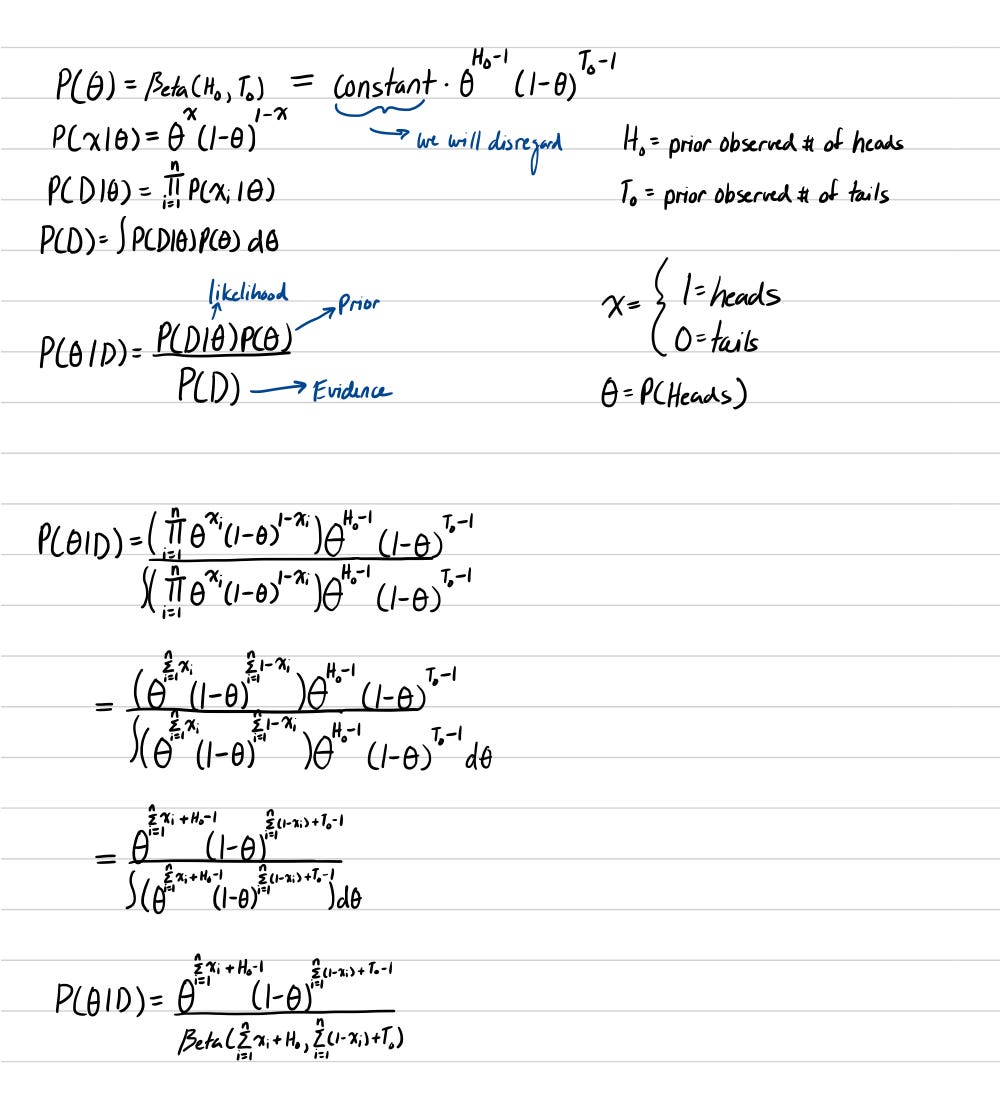 P(θ) = Beta(H₀, T₀) = constant · θ^(H₀-1) (1-θ)^(T₀-1)
→ we will disregard
P(x|θ) = θ^x (1-θ)^(1-x)
H₀ = prior observed # of heads
P(D|θ) = ∏_{i=1}^{n} P(x_i|θ)
T₀ = prior observed # of tails
P(D) = ∫ P(D|θ)P(θ) dθ
likelihood
Prior
x = { 1 = heads
0 = tails
P(θ|D) = P(D|θ)P(θ) / P(D)
→ Evidence
θ = P(Heads)
P(θ|D) = (∏_{i=1}^{n} θ^(x_i) (1-θ)^(1-x_i)) θ^(H₀-1) (1-θ)^(T₀-1)
∫(∏_{i=1}^{n} θ^(x_i) (1-θ)^(1-x_i)) θ^(H₀-1) (1-θ)^(T₀-1)
= (θ^(∑_{i=1}^{n} x_i) (1-θ)^(∑_{i=1}^{n} 1-x_i)) θ^(H₀-1) (1-θ)^(T₀-1)
∫(θ^(∑_{i=1}^{n} x_i) (1-θ)^(∑_{i=1}^{n} 1-x_i)) θ^(H₀-1) (1-θ)^(T₀-1) dθ
= θ^(∑_{i=1}^{n} x_i + H₀-1) (1-θ)^(∑_{i=1}^{n} (1-x_i) + T₀-1)
∫(θ^(∑_{i=1}^{n} x_i + H₀-1) (1-θ)^(∑_{i=1}^{n} (1-x_i) + T₀-1)) dθ
P(θ|D) = θ^(∑_{i=1}^{n} x_i + H₀-1) (1-θ)^(∑_{i=1}^{n} (1-x_i) + T₀-1)
Beta(∑_{i=1}^{n} x_i + H₀, ∑_{i=1}^{n} (1-x_i) + T₀)